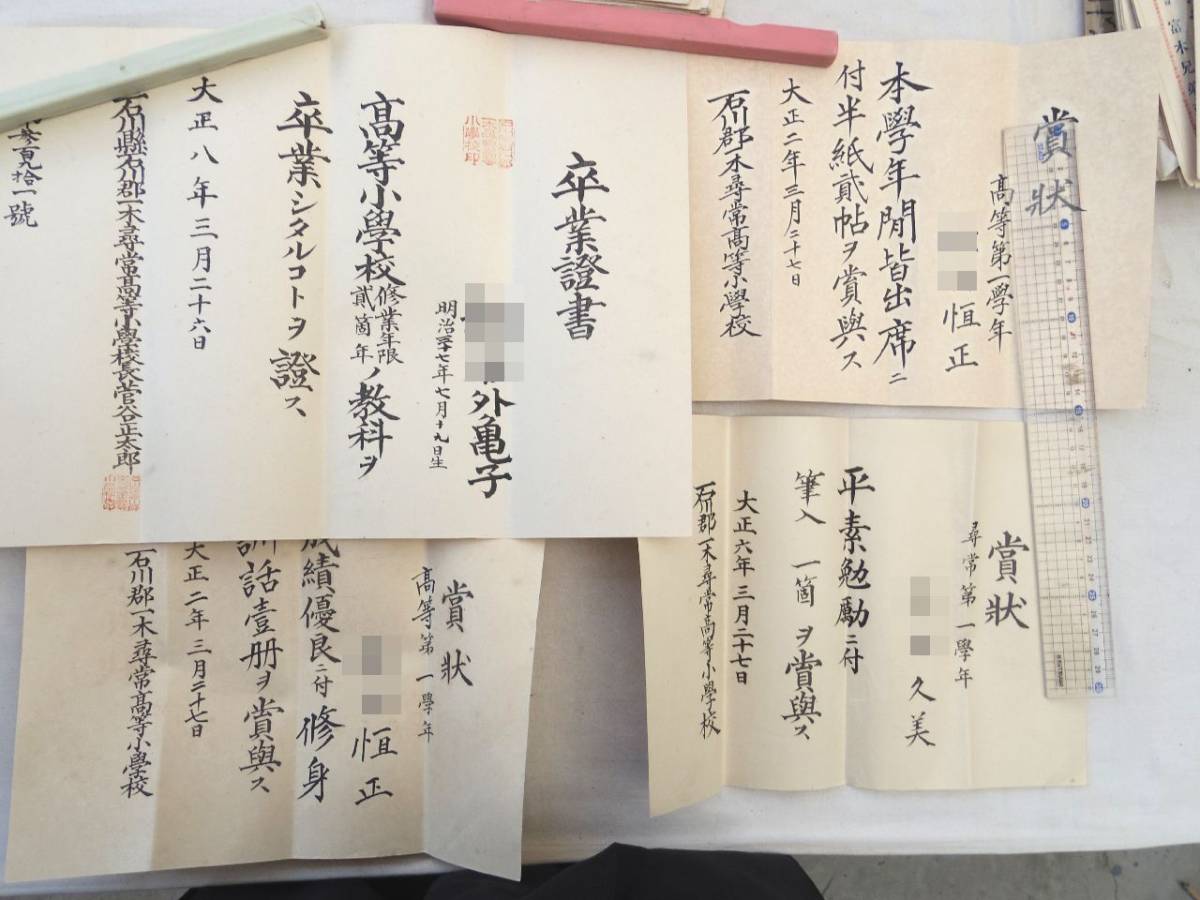 賞狀
高等第一學年
恒正
本學年間皆出席ニ
付半紙貳帖ヲ賞與ス
大正二年三月二十七日
石川郡一木尋常高等小學校
卒業證書
外亀子
明治三十七年七月十九日生
高等小學校修業年限貳箇年ノ教科ヲ
卒業シタルコトヲ證ス
大正八年三月二十六日
石川縣石川郡一木尋常高等小學校長菅谷正太郎
參百九拾一號
賞狀
尋常第一學年
久美
平素勉勵ニ付
筆入一箇ヲ賞與ス
大正六年三月二十七日
石川郡一木尋常高等小學校
賞狀
高等第一學年
恒正
成績優良ニ付修身
訓話壹册ヲ賞與ス
大正二年三月二十七日
石川郡一木尋常高等小學校